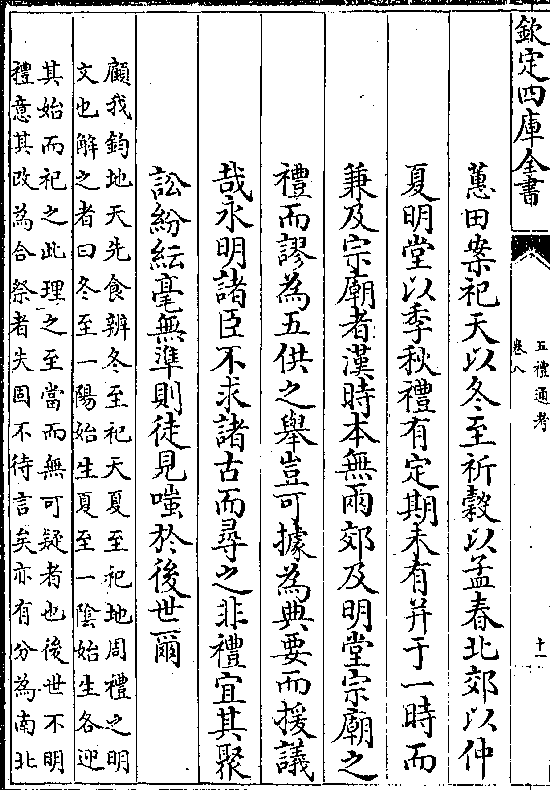 欽定四庫全書
五禮通考
卷八
十一
蕙田案祀天以冬至祈穀以孟春北郊以仲
夏明堂以季秋禮有定期未有并于一時而
兼及宗廟者漢時本無兩郊及明堂宗廟之
禮而謬為五供之舉豈可據為典要而援議
哉永明諸臣不求諸古而尋之非禮宜其聚
訟紛紜毫無準則徒見嗤於後世爾
顧我鈞地天先食辨冬至祀天夏至祀地周禮之明
文也解之者曰冬至一陽始生夏至一陰始生各迎
其始而祀之此理之至當而無可疑者也後世不明
禮意其改為合祭者失固不待言矣亦有分為南北